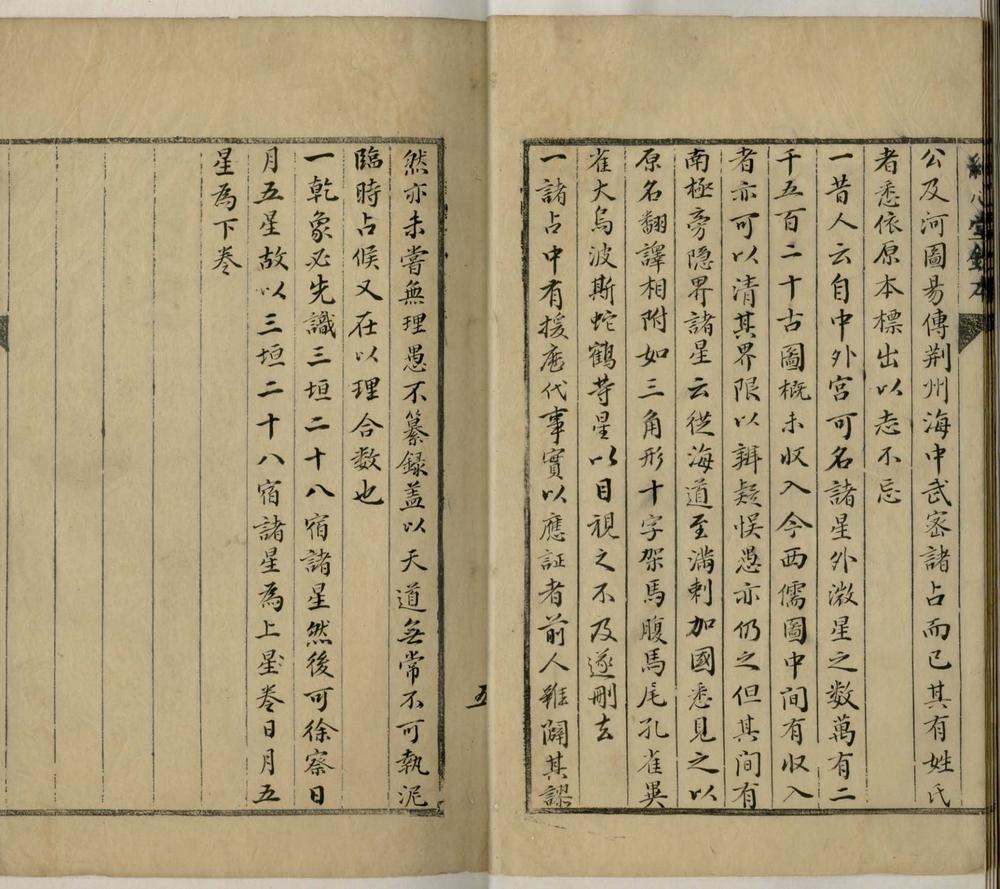 公及河圖易傳荆州海中武宻諸占而已其有姓氏
者悉依原本標出以志不忘
一昔人云自中外宫可名諸星外微星之数萬有二
千五百二十古圖概未収入今西儒圖中间有収入
者亦可以清其界限以辨疑悮愚亦仍之但其间有
南極旁隐界諸星云從海道至满剌加國悉見之以
原名翻譯相附如三角形十字架馬腹馬尾孔雀異
雀大鸟波斯蛇鶴䓁星以目視之不及遂刪去
一諸占中有援歷代事實以應証者前人雖闢其謬
然亦未嘗無理愚不纂録盖以天道无常不可執泥
臨時占候又在以理合数也
一乾象必先識三垣二十八宿諸星然後可徐察日
月五星故以三垣二十八宿諸星為上卷日月五
星為下卷
五